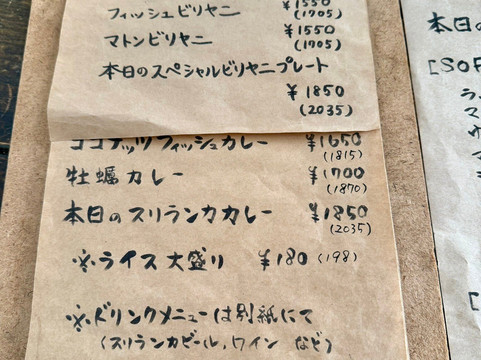 フィッシュビリヤニ ¥1550
(1705)
マトンビリヤニ ¥1550
(1705)
本日のスペシャルビリヤニプレート
¥1850
(2035)
ココナッツフィッシュカレー ¥1650
(1815)
牡蠣カレー ¥1700
(1870)
本日のスリランカカレー ¥1850
(2035)
※ライス大盛り ¥180 (198)
※ドリンクメニューは別紙にて
(スリランカビール、ワイン など)
本日の
[SOF